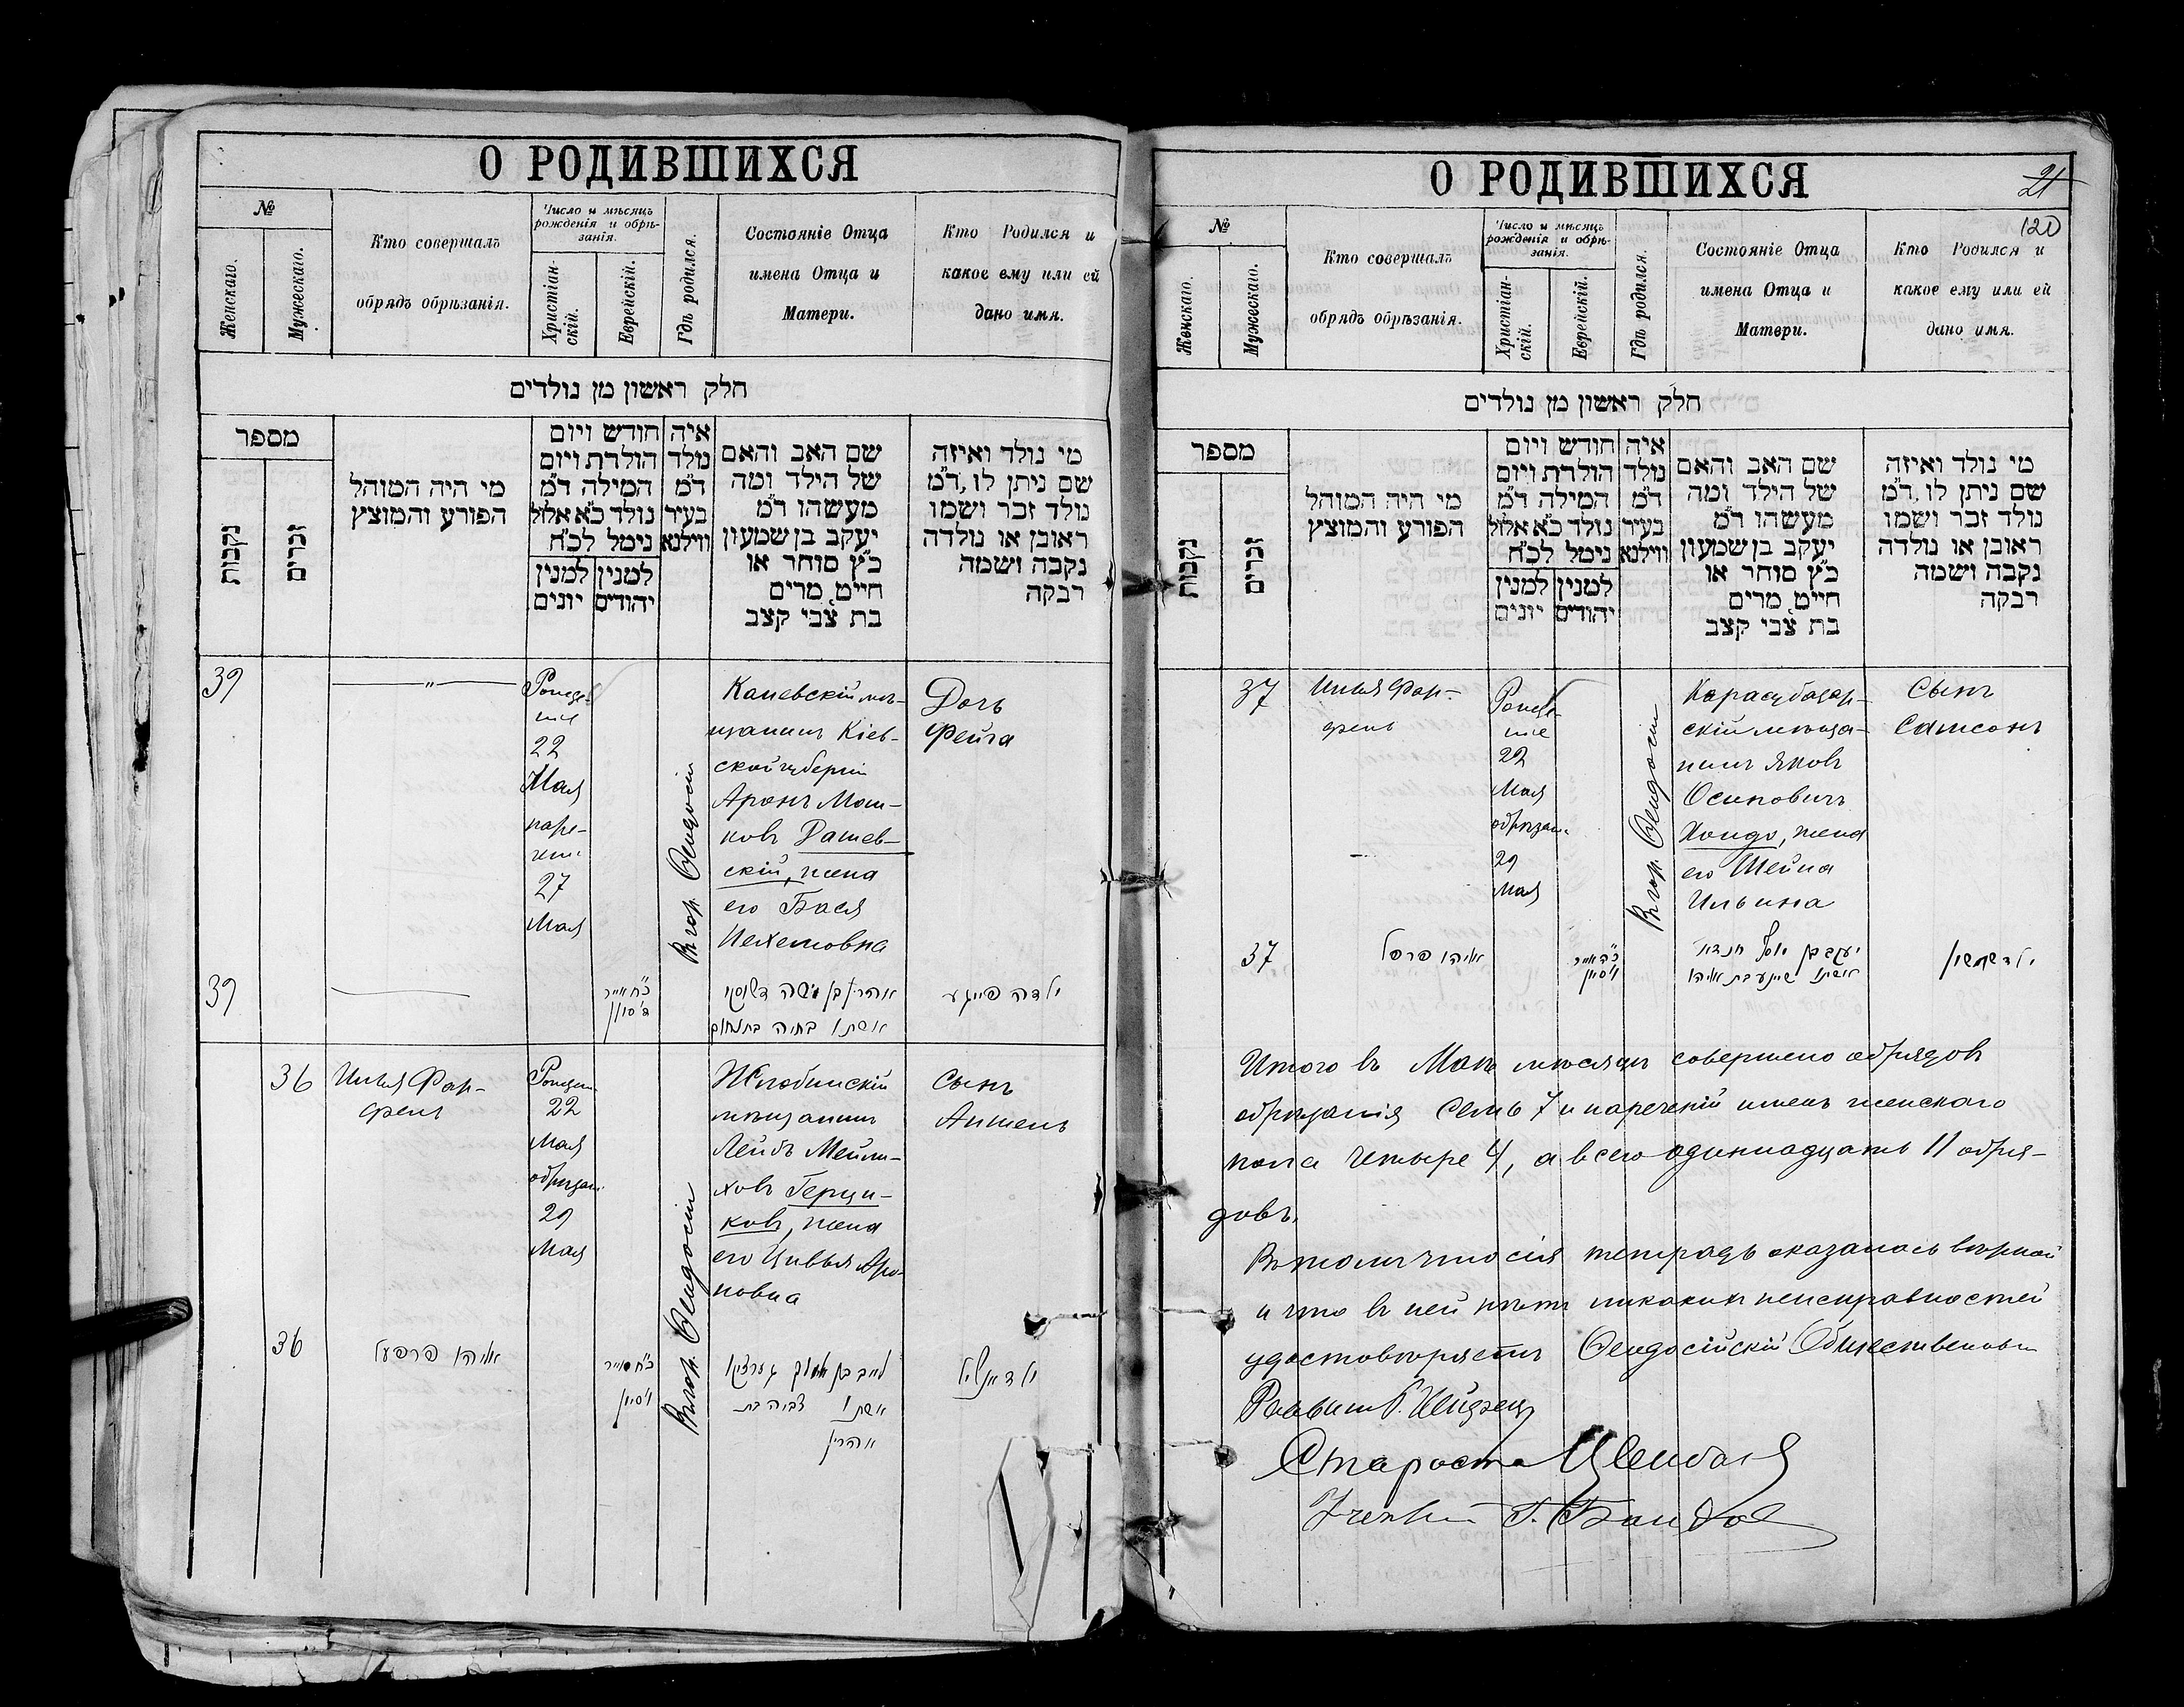 О РОДИВШИХСЯ
№
Женскаго.
Мужескаго.
Кто совершалъ
обрядъ обрѣзанія.
Число и мѣсяцъ
рожденія и обрѣ-
занія.
Христіан-
скій.
Еврейскій.
Гдѣ родился.
Состояніе Отца
имена Отца и
Матери.
Кто Родился и
какое ему или ей
дано имя.
חלק ראשון מן נולדים
מספר
נקבות
זכרים
מי היה המוהל
הפורע והמוצץ
חודש ויום
הולדת ויום
המילה ד״מ
נולד כ״א אלול
נימל לכ״ח
למנין
יהודים
למנין
יונים
איה
נולד
ד״מ
בעיר
ווילנא
שם האב והאם
של הילד ומה
מעשהו ד״מ
יעקב בן שמעון
כ״ץ סוחר או
חייט, מרים
בת צבי קצב
מי נולד ואיזה
שם ניתן לו, ד״מ
נולד זכר ושמו
ראובן או נולדה
נקבה ושמה
רבקה
39
— „ —
22
Мая
наре-
27
Мая
Въ гор. Ѳеодосіи
Каневскій мѣ-
щанинъ Кіев-
ской губерніи
Аронъ Мош-
ковъ Рашев-
скій, жена
его Бася
Дочь
Фейга
39
כ״ח אייר
ד׳ סיון
אשתו בתיה בת נחום
ילדה פייגע
36
Илья Фар-
фель
22
Мая
обрѣзан.
29
Мая
Въ гор. Ѳеодосіи
Жлобинскій
мѣщанинъ
Лейбъ Мейли-
ховъ Герци-
ковъ, жена
его Цивья Аро-
новна
Сынъ
Аншель
36
אליהו פרפעל
כ״ח אייר
ו׳ סיון
אשתו צביה בת
אהרין
О РОДИВШИХСЯ
21
120
№
Женскаго.
Мужескаго.
Кто совершалъ
обрядъ обрѣзанія.
Число и мѣсяцъ
рожденія и обрѣ-
занія.
Христіан-
скій.
Еврейскій.
Гдѣ родился.
Состояніе Отца
имена Отца и
Матери.
Кто Родился и
какое ему или ей
дано имя.
חלק ראשון מן נולדים
מספר
נקבות
זכרים
מי היה המוהל
הפורע והמוצץ
חודש ויום
הולדת ויום
המילה ד״מ
נולד כ״א אלול
נימל לכ״ח
למנין
יהודים
למנין
יונים
איה
נולד
ד״מ
בעיר
ווילנא
שם האב והאם
של הילד ומה
מעשהו ד״מ
יעקב בן שמעון
כ״ץ סוחר או
חייט, מרים
בת צבי קצב
מי נולד ואיזה
שם ניתן לו, ד״מ
נולד זכר ושמו
ראובן או נולדה
נקבה ושמה
רבקה
37
Илья Фар-
фель
22
Мая
обрѣзан.
29
Мая
Въ гор. Ѳеодосіи
Карасубазар-
скій мѣща-
нинъ Яковъ
Осиповичъ
Хондо, жена
его Шейна
Ильина
Сынъ
Самсонъ
37
אליהו פרפל
ו׳ סיון
יעקב בן יוסף
אשתו שיינע בת אליהו
ילד שמשון
Итого въ Маѣ мѣсяцѣ совершено обрядовъ
обрѣзанія семь 7 и нареченій именъ женскаго
пола четыре 4, а всего одиннадцать 11 обря-
довъ.
Въ томъ что сія тетрадь оказалась вѣрной
и что въ ней нѣтъ никакихъ неисправностей
удостовѣряетъ Ѳеодосійскій Общественный
Раввинъ
Староста